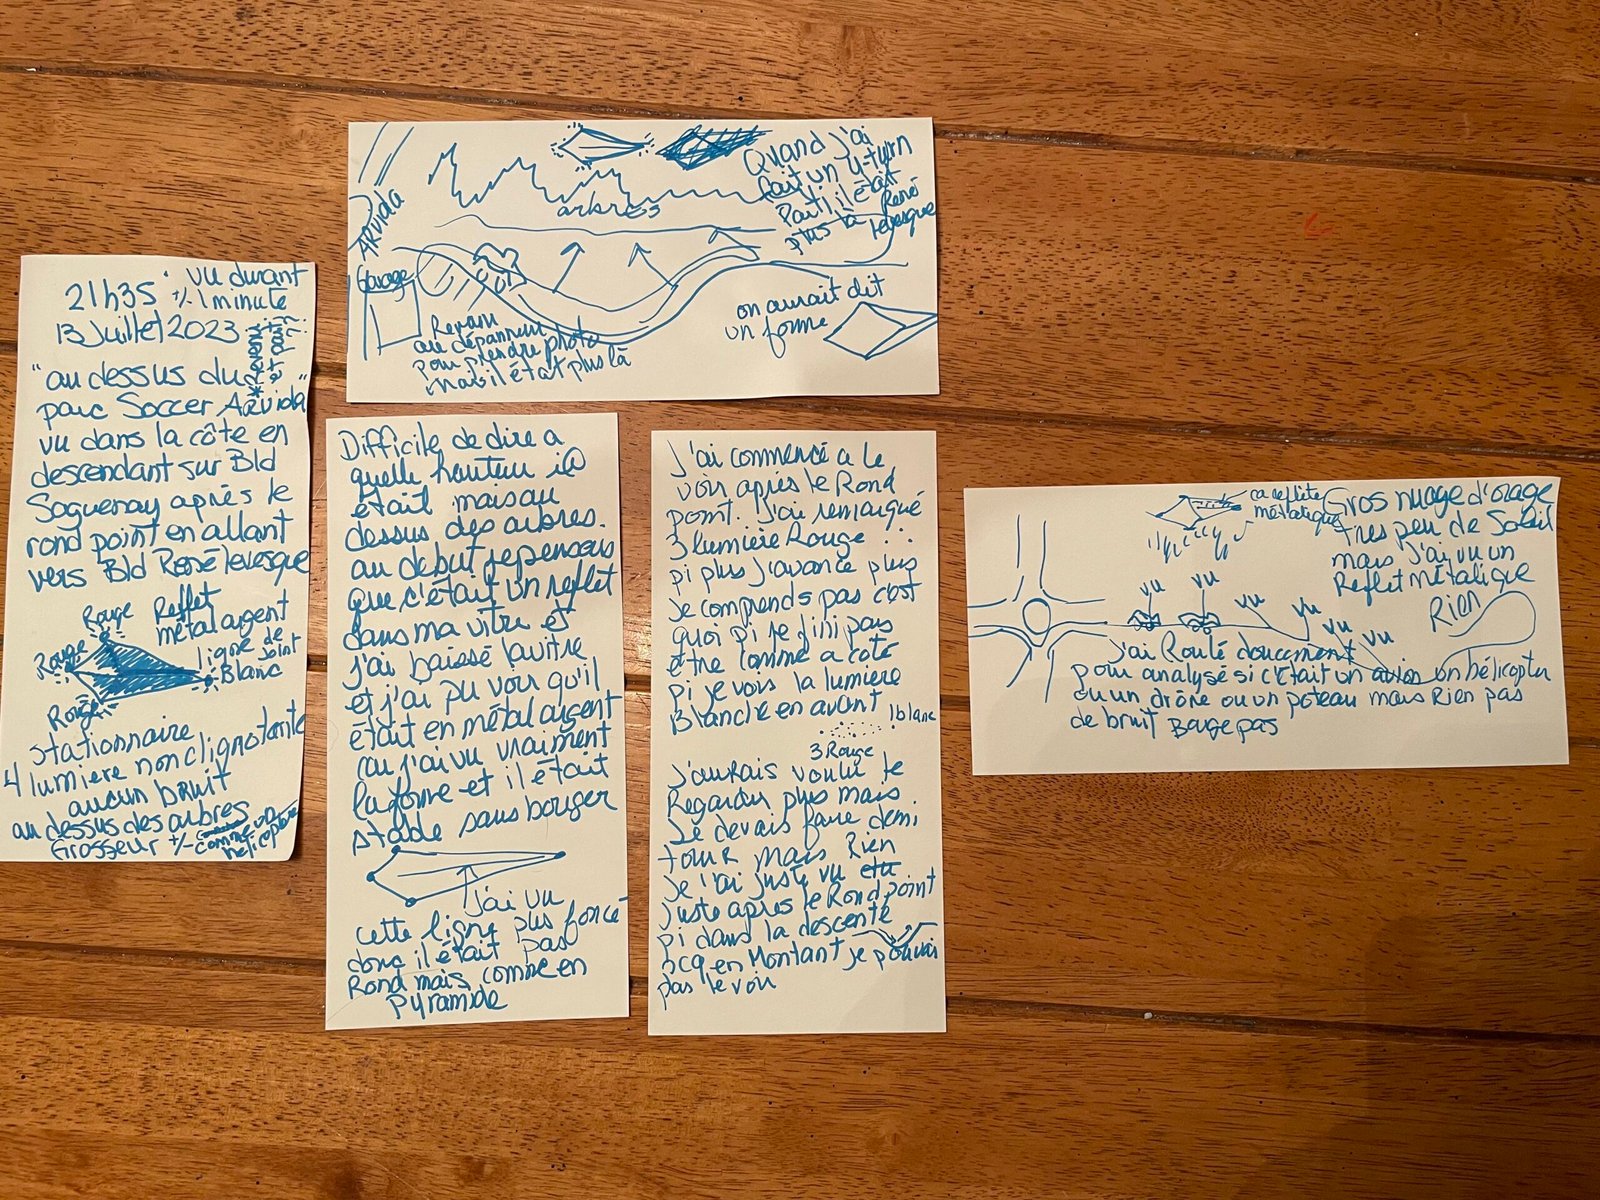 21h35 • vu durant
+/- 1 minute
13 Juillet 2023
* Revenu
et parti ??
"au dessus du
parc Soccer ARVida"
vu dans la côte en
descendant sur Bld
Saguenay après le
rond point en allant
vers Bld René levesque
Rouge Reflet
métal argent
Rouge ligne de
joint
Blanc
Rouge
stationnaire
4 lumiere non clignotante
aucun bruit
au dessus des arbres
Grosseur +/- comme un
hélicoptère
Quand j'ai
fait un U-turn
Parti il était
plus là
René
levesque
arbres
ARVida
Garage
Revenu
au dépanneur
pour prendre photo
mais il était plus là
on aurait dit
un forme
Difficile de dire a
quelle hauteur il
était mais au
dessus des arbres.
au debut je pensais
que c'était un reflet
dans ma vitre et
j'ai baissé la vitre
et j'ai pu voir qu'il
était en métal argent
car j'ai vu vraiment
la forme et il était
stable sans bouger
j'ai vu
cette ligne plus foncé
donc il était pas
Rond mais comme en
pyramide
J'ai commencé a le
voir après le Rond
point. J'ai remarqué
3 lumière Rouge
pi plus j'avance plus
je comprends pas c'est
quoi pi je fini pas
etre comme a coté
pi je vois la lumiere
Blanche en avant
1 blanc
3 Rouge
J'aurais voulu le
Regarder plus mais
Je devais faire demi
tour mais Rien
je l'ai juste vu
juste apres le Rond point
pi dans la descente
pcq en Montant je pouvais
pas le voir
ca reflète
métalique
Gros nuage d'orage
très peu de Soleil
mais j'ai vu un
Reflet Métalique
Rien
vu vu vu vu vu vu
j'ai Roulé doucement
pour analysé si c'était un avion un hélicopter
ou un drône ou un poteau mais Rien pas
de bruit Bouge pas